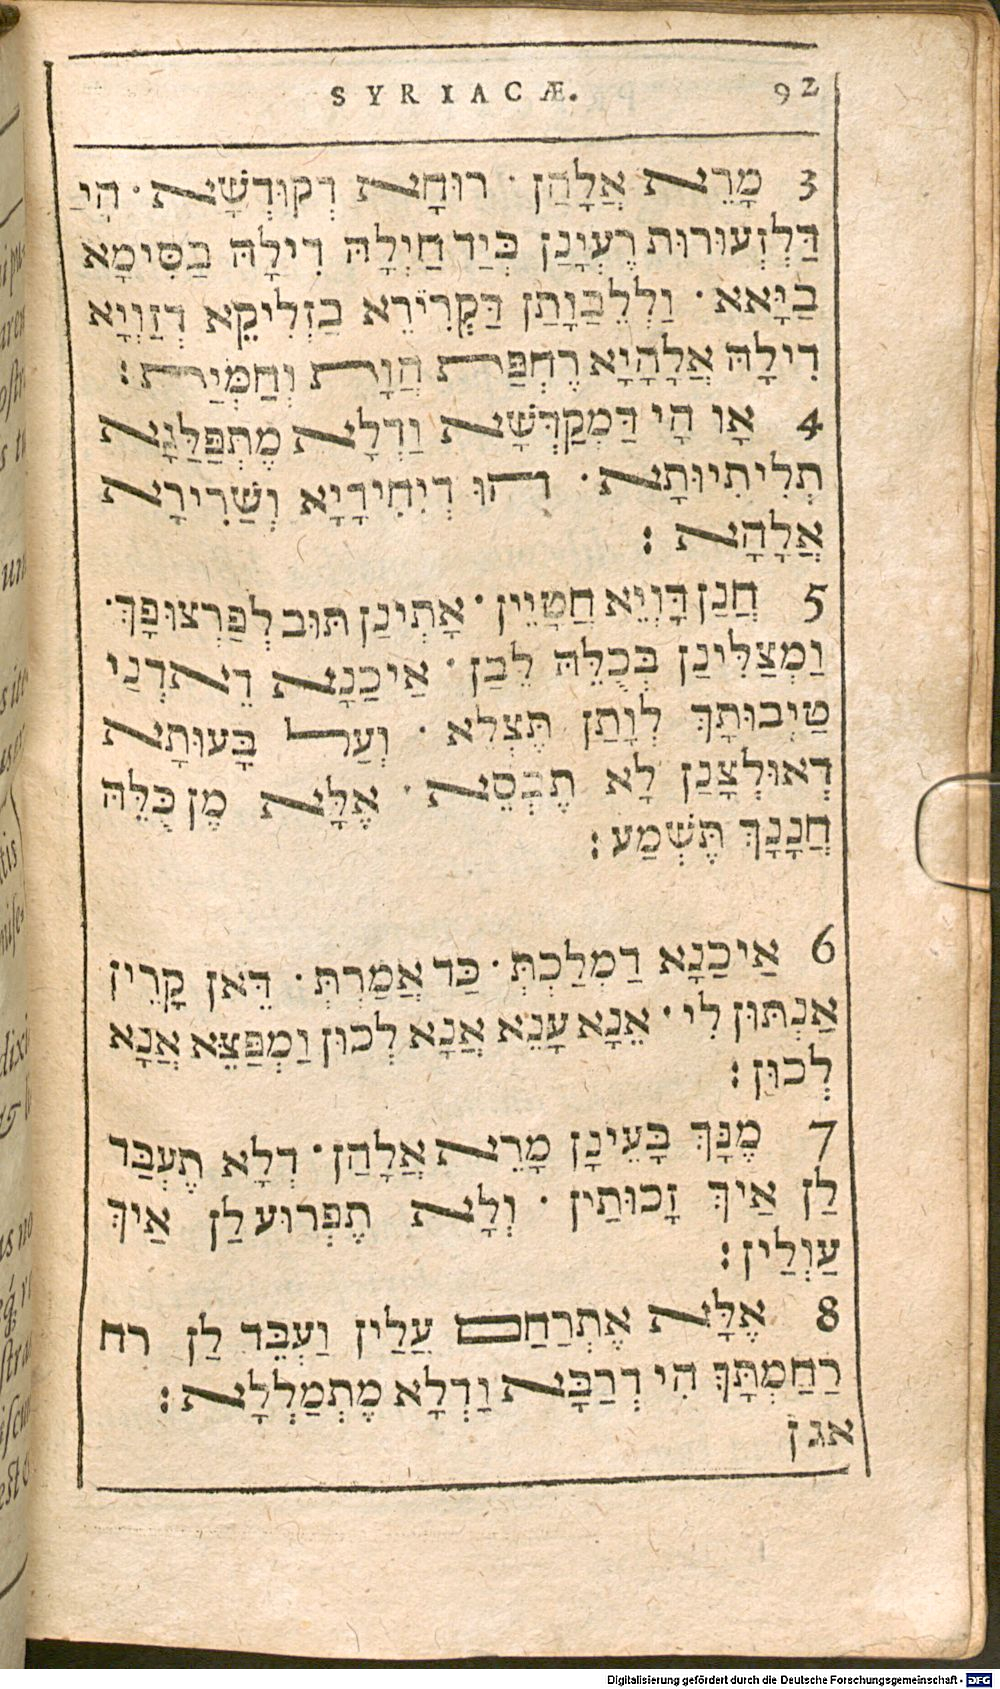 SYRIACÆ. 92
3 מָרֵא אֲלָהַן · רוּחָא דְקוּדְשָׁא · הִי
דַּלְזְעוּרוּת רֶעְיָנַן בְּיַד חַיְלָהּ דִילָהּ בַסִּימָא
בַיָּאא · וַלְלֵבַוָתַן דַּקְרִירֵא בַזְלִיקֵא דְזַוְיָא
דִילָהּ אֲלָהָיָא רֶחְפַּת הֲוָת וְחַמְּיַת׃
4 אָו הָי דַּמִקַדְּשָׁא וַדְלָא מֶתְפַּלְּגָא
תְלִיתִיוּתָא · הוּ דְיִחִידָיָא וְשַׁרִירָא
אֲלָהָא ׃
5 חֲנַן דָּוְיֵא חַטָיֵין · אָתְינַן תּוּב לְפַּרְצוּפָךְ ·
וַמְצַלִּינַן בְּכֻלֵּהּ לֵבַן · אַיכַנָא דֶאדְנַי
טַיְבוּתָךְ לְוָתַן תֶּצְלֵא · וְעַל בָּעוּתָא
דְאוּלְצָנַן לָא תֶבְסֵא · אֶלָּא מֶן כֻּלֵּהּ
חֲנָנָךְ תֶּשְׁמַע׃
6 אַיכַנָא דַמִלַכְתְּ · כַּד אֲמַרְתְּ · דֶּאן קָרֵין
אַנְתּוּן לִי · אֶנָא עָנֵא אֲנָא לְכוּן וַמְפַּצֵּא אֲנָא
לְכוּן׃
7 מֶנָּךְ בָּעֵינָן מָרֵא אֲלָהַן · דְלָא תֶעְבַּד
לַן אַיךְ זָכוּתַין · וְלָא תֶפְרוּע לַן אַיךְ
עַוְלַין׃
8 אֶלָּא אֶתְרַחַם עֲלַין וַעְבֵּד לַן רח
רַחַמִתָּךְ הִי דְרַבָּא וַדְלָא מֶתְמַלְלָא׃
אגן
Digitalisierung gefördert durch die Deutsche Forschungsgemeinschaft - DFG